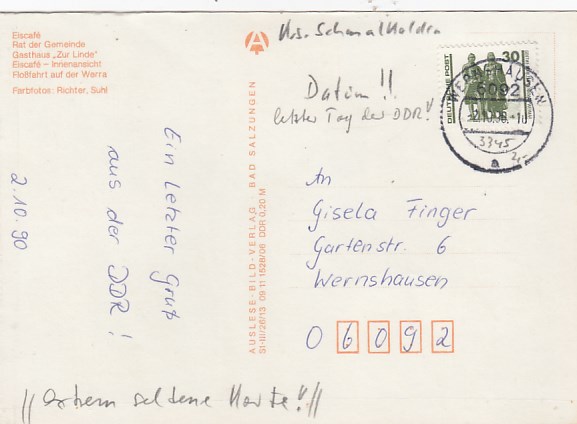 Eiscafé
Rat der Gemeinde
Gasthaus „Zur Linde"
Eiscafé – Innenansicht
Floßfahrt auf der Werra
Farbfotos: Richter, Suhl
Krs. Schmalkalden
Datum!!
letzter Tag der DDR!!
30
DEUTSCHE POST
WERNSHAUSEN
6092
-2.10.90.-10
a
3345
2,-
Ein letzter Gruß
aus der DDR!
2.10.90
AUSLESE-BILD-VERLAG · BAD SALZUNGEN
St-III/26/13 09 11 1528/06 DDR 0,20 M
An
Gisela Finger
Gartenstr. 6
Wernshausen
O 6092
//extrem seltene Karte!!//